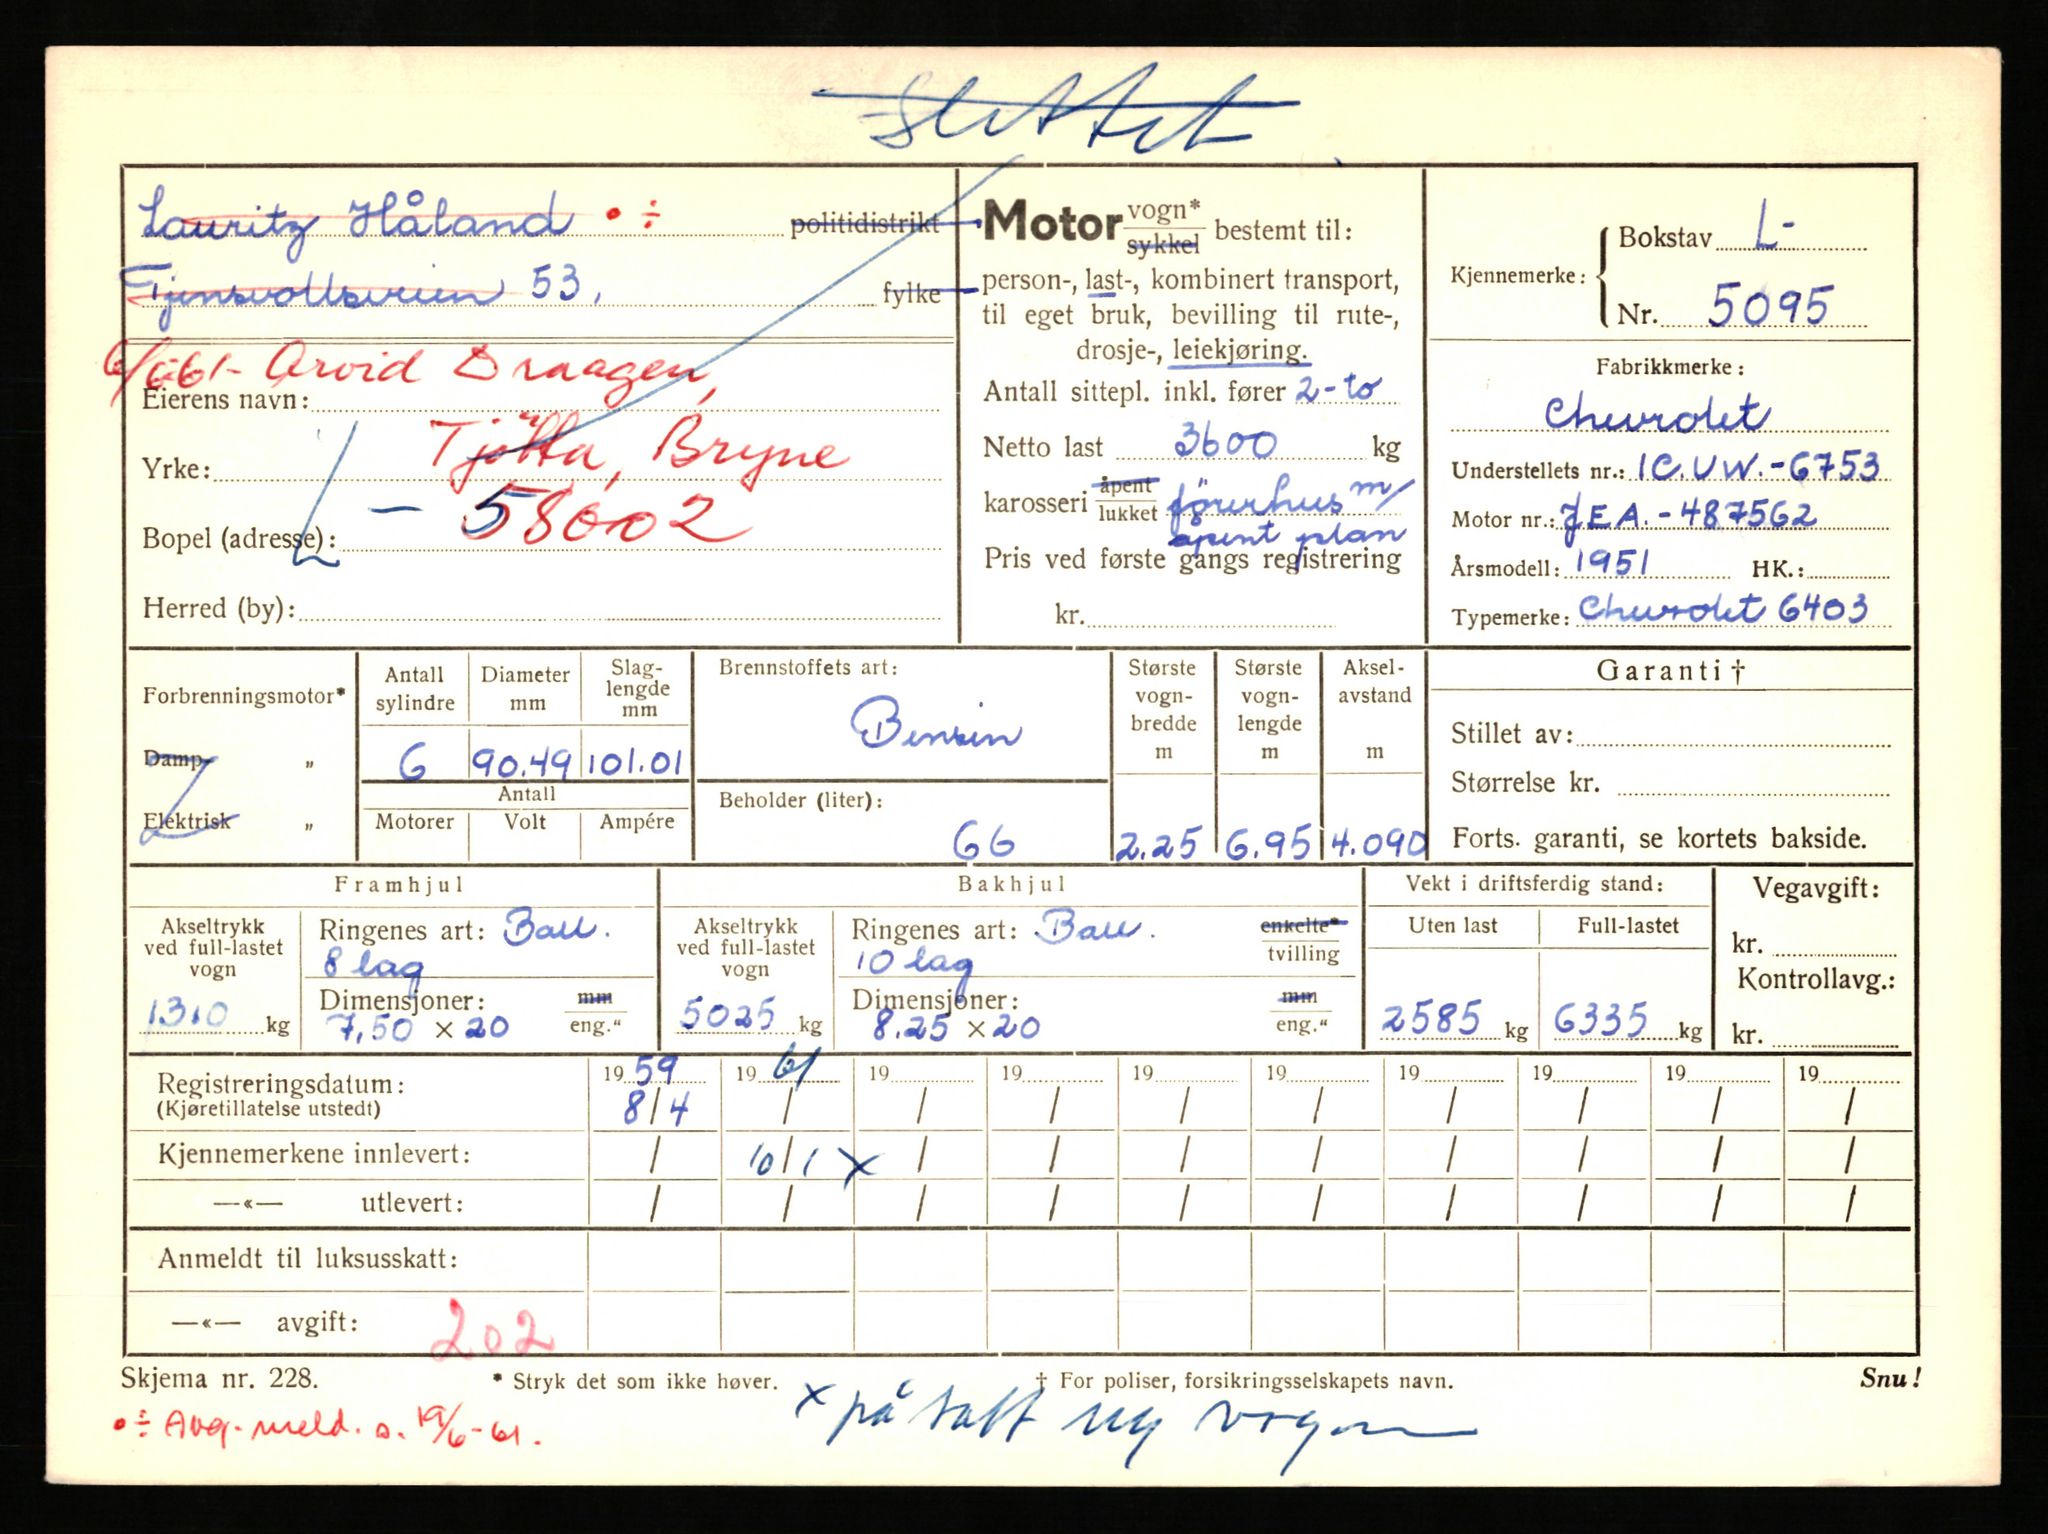 Slettet
Lauritz Håland •÷ politidistrikt
Tjensvollsveien 53. fylke
6/6 61- Arvid Draagen,
Eierens navn:
Tjøtta, Bryne
Yrke:
L - 58002
Bopel (adresse):
Herred (by):
Motor vogn* sykkel bestemt til:
person-, last-, kombinert transport,
til eget bruk, bevilling til rute-,
drosje-, leiekjøring.
Antall sittepl. inkl. fører 2-to
Netto last 3600 kg
karosseri åpent lukket førerhus m/
åpent plan
Pris ved første gangs registrering
kr.
Kjennemerke: Bokstav L-
Nr. 5095
Fabrikkmerke:
Chevrolet
Understellets nr.: 1C.UW.-6753
Motor nr.: JEA.-487562
Årsmodell: 1951 HK.:
Typemerke: Chevrolet 6403
Forbrenningsmotor*
Damp "
Elektrisk "
Antall sylindre
Diameter mm
Slaglengde mm
6 90.49 101.01
Antall
Motorer Volt Ampére
Brennstoffets art:
Bensin
Beholder (liter):
66
Største vognbredde m
Største vognlengde m
Akselavstand m
2.25 6.95 4.090
Garanti †
Stillet av:
Størrelse kr.
Forts. garanti, se kortets bakside.
Framhjul
Akseltrykk ved full-lastet vogn
1310 kg
Ringenes art: Ball.
8 lag
Dimensjoner: mm
7.50 x 20 eng."
Bakhjul
Akseltrykk ved full-lastet vogn
5025 kg
Ringenes art: Ball. enkelte*
10 lag tvilling
Dimensjoner: mm
8.25 x 20 eng."
Vekt i driftsferdig stand:
Uten last Full-lastet
2585 kg 6335 kg
Vegavgift:
kr.
Kontrollavg.:
kr.
Registreringsdatum: 1959 1961 19 19 19 19 19 19 19 19
(Kjøretillatelse utstedt) 8/4 / / / / / / / / /
Kjennemerkene innlevert: / 10/1 x / / / / / / / /
—«— utlevert: / / / / / / / / / /
Anmeldt til luksusskatt:
—«— avgift: 202
Skjema nr. 228. * Stryk det som ikke høver. † For poliser, forsikringsselskapets navn. Snu!
•÷ Avg. meld. s. 19/6-61. x på satt ny vogn